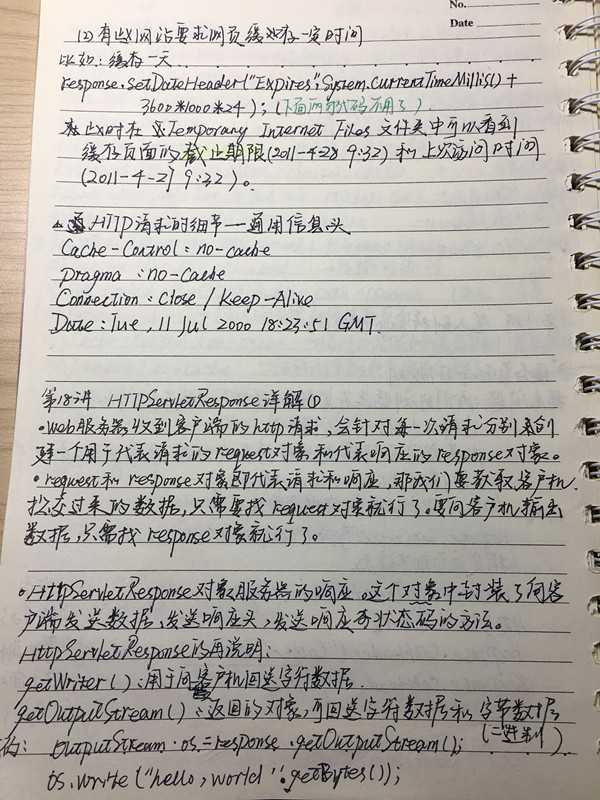 No.
Date
(2) 有些网站要求网页缓存一定时间
比如:缓存一天
response.setDateHeader("Expires",System.currentTimeMillis()+
3600*1000*24);(下面两句代码不用了)
在此时在 Temporary Internet Files 文件夹中可以看到
缓存页面的截止期限(2011-4-28 9:32)和上次访问时间
(2011-4-27 9:32)。
HTTP请求的细节——通用信息头
Cache-Control:no-cache
Pragma:no-cache
Connection:close/Keep-Alive
Date:Tue,11 Jul 2000 18:23:51 GMT.
第18讲 HTTPServletResponse详解(1)
·web服务器收到客户端的http请求,会针对每一次请求分别来创
建一个用于代表请求的request对象和代表响应的response对象。
·request和response对象即代表请求和响应,那我们要获取客户机
提交过来的数据,只需要找request对象就行了。要向客户机输出
数据,只需找response对象就行了。
·HttpServletResponse对象服务器的响应。这个对象中封装了向客
户端发送数据、发送响应头,发送响应状态码的方法。
HttpServletResponse的再说明:
getWriter():用于向客户机回送字符数据
getOutputStream():返回的对象,可回送字符数据和字节数据
(二进制)
OutputStream os=response.getOutputStream();
os.write("hello,world".getBytes());